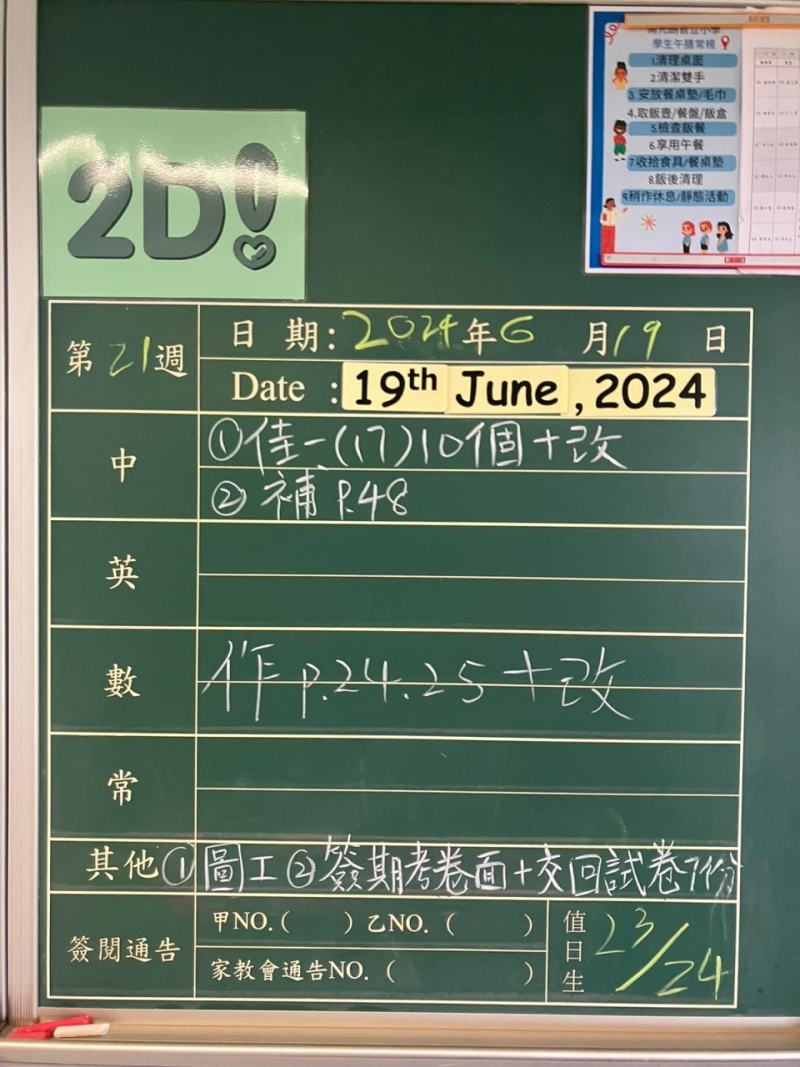 2D!
學生午膳常規
1.清理桌面
2.清潔雙手
3.安放餐桌墊/毛巾
4.取飯壺/餐盤/飯盒
5.檢查飯餐
6.享用午餐
7.收拾食具/餐桌墊
8.飯後清理
9.稍作休息/靜態活動
第21週
日期:2024年6月19日
Date :19th June, 2024
中
①佳一(17)10個+改
②補P.48
英
數
作P.24.25+改
常
其他①圖工②簽期考卷面+交回試卷7份
簽閱通告
甲NO.( )乙NO.( )
家教會通告NO.( )
值日生
23/24